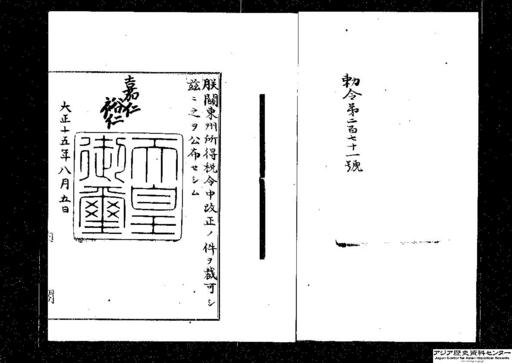 勅令第二百七十一號
朕關東州所得税令中改正ノ件ヲ裁可シ
茲ニ之ヲ公布セシム
嘉仁
裕仁
天皇
御璽
大正十五年八月五日
内閣
アジア歴史資料センター
Japan Center for Asian Historical Records